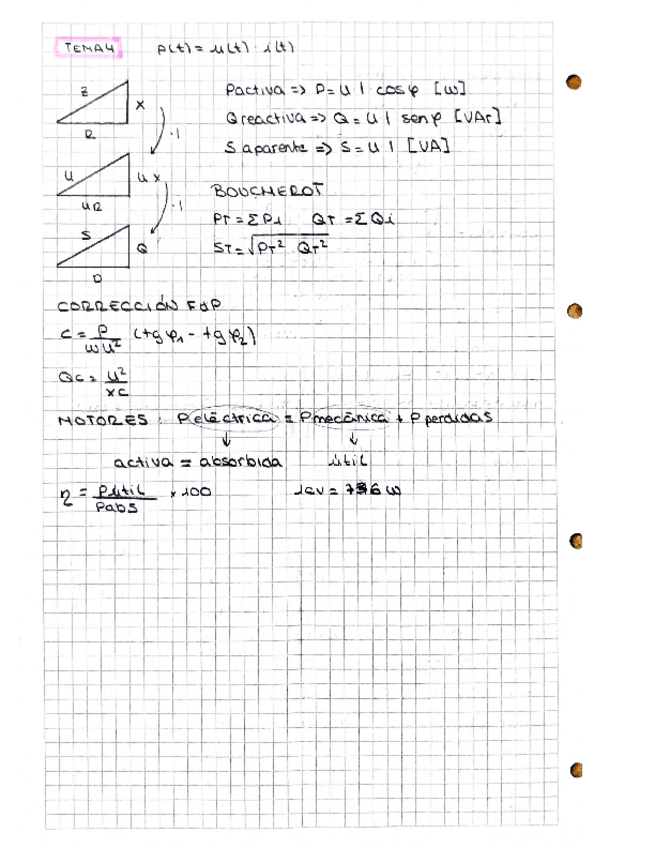 TEMA4 p(t) = u(t) · i(t)
Z
X
R
Pactiva => P = U I cosφ [W]
Qreactiva => Q = U I senφ [VAr]
S aparente => S = U I [VA]
·I
U
Ux
UR
·I
S
Q
BOUCHEROT
PT = ΣPi QT = ΣQi
ST = √PT² QT²
CORRECCIÓN FdP
C = P/ωU² (tgφ1 - tgφ2)
Qc = U²/Xc
MOTORES: Peléctrica = Pmecánica + P perdidas
↓ ↓
activa = absorbida útil
η = Pútil/Pabs × 100 1CV = 736 W